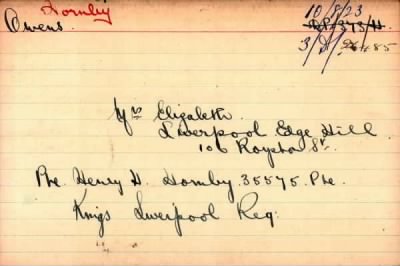 Hornby
Owens.
10/8/23
3/D/
Mrs Elizabeth.
Liverpool Edge Hill.
106 Royston St.
Pte Henry H. Hornby. 35575. Pte.
Kings Liverpool Reg.